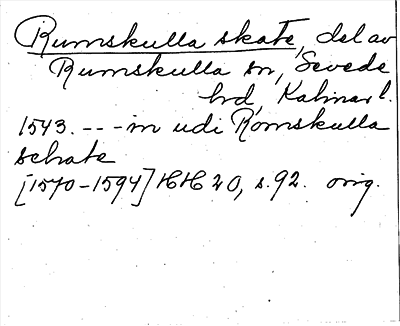 Rumskulla skate, del av
Rumskulla sn, Sevede
hd, Kalmar l.
1543. --- in udi Romskulla
schate
[1570-1594] HH 20, s. 92. orig.